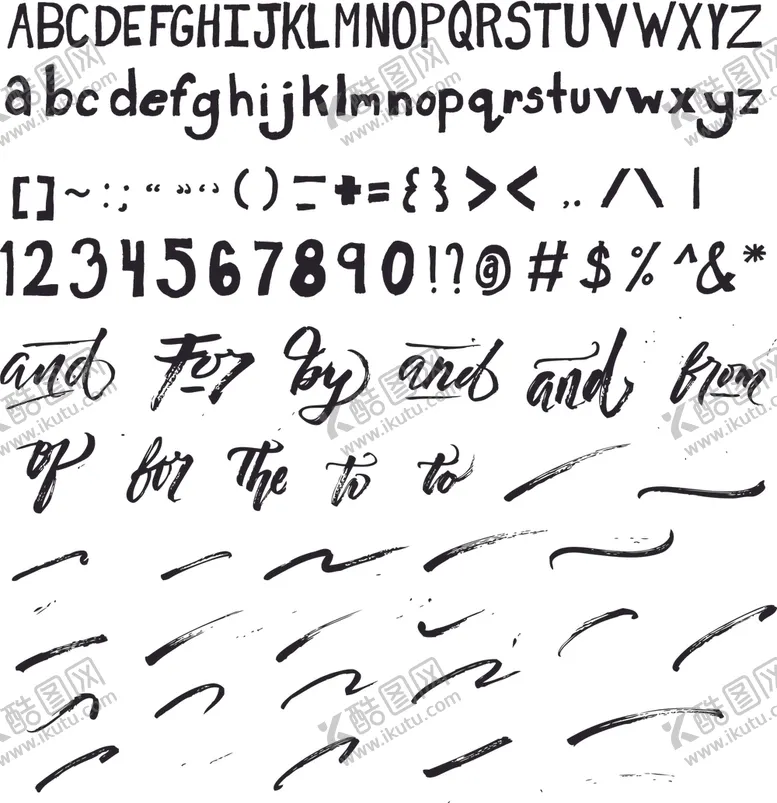 ABCDEFGHIJKLMNOPQRSTUVWXYZ
abcdefghijklmnopqrstuvwxyz
[]~:; “ ” ‘ ’ () – - += {} >< ,. /\ |
1234567890!?@#$%^&*
and For by and and from
of for The to to
酷图网
www.ikutu.com